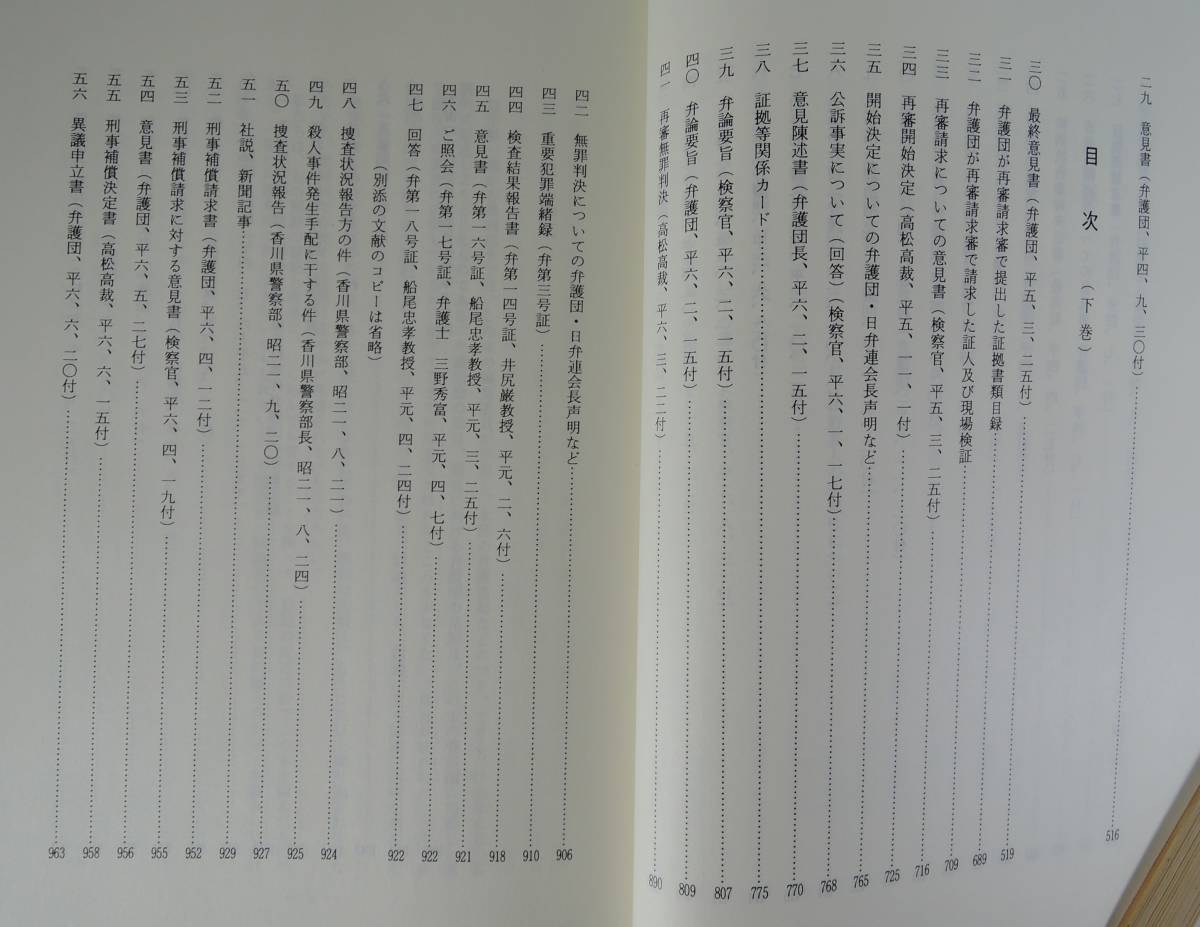 二九 意見書（弁護団、平四、九、三〇付）……516
目次（下巻）
三〇 最終意見書（弁護団、平五、三、二五付）……519
三一 弁護団が再審請求審で提出した証拠書類目録……689
三二 弁護団が再審請求審で請求した証人及び現場検証……709
三三 再審請求についての意見書（検察官、平五、三、二五付）……716
三四 再審開始決定（高松高裁、平五、一一、一付）……725
三五 開始決定についての弁護団・日弁連会長声明など……765
三六 公訴事実について（回答）（検察官、平六、一、一七付）……768
三七 意見陳述書（弁護団長、平六、二、一五付）……770
三八 証拠等関係カード……775
三九 弁論要旨（検察官、平六、二、一五付）……807
四〇 弁論要旨（弁護団、平六、二、一五付）……809
四一 再審無罪判決（高松高裁、平六、三、二二付）……890
四二 無罪判決についての弁護団・日弁連会長声明など……906
四三 重要犯罪端緒録（弁第三号証）……910
四四 検査結果報告書（弁第一四号証、井尻巌教授、平元、二、六付）……918
四五 意見書（弁第一六号証、船尾忠孝教授、平元、三、二五付）……921
四六 ご照会（弁第一七号証、弁護士 三野秀富、平元、四、七付）……922
四七 回答（弁第一八号証、船尾忠孝教授、平元、四、二四付）……922
（別添の文献のコピーは省略）
四八 捜査状況報告方の件（香川県警察部、昭二一、八、二一）……924
四九 殺人事件発生手配に干する件（香川県警察部長、昭二一、八、二四）……925
五〇 捜査状況報告（香川県警察部、昭二一、九、二〇）……927
五一 社説、新聞記事……929
五二 刑事補償請求書（弁護団、平六、四、一二付）……952
五三 刑事補償請求に対する意見書（検察官、平六、四、一九付）……955
五四 意見書（弁護団、平六、五、二七付）……956
五五 刑事補償決定書（高松高裁、平六、六、一五付）……958
五六 異議申立書（弁護団、平六、六、二〇付）……963